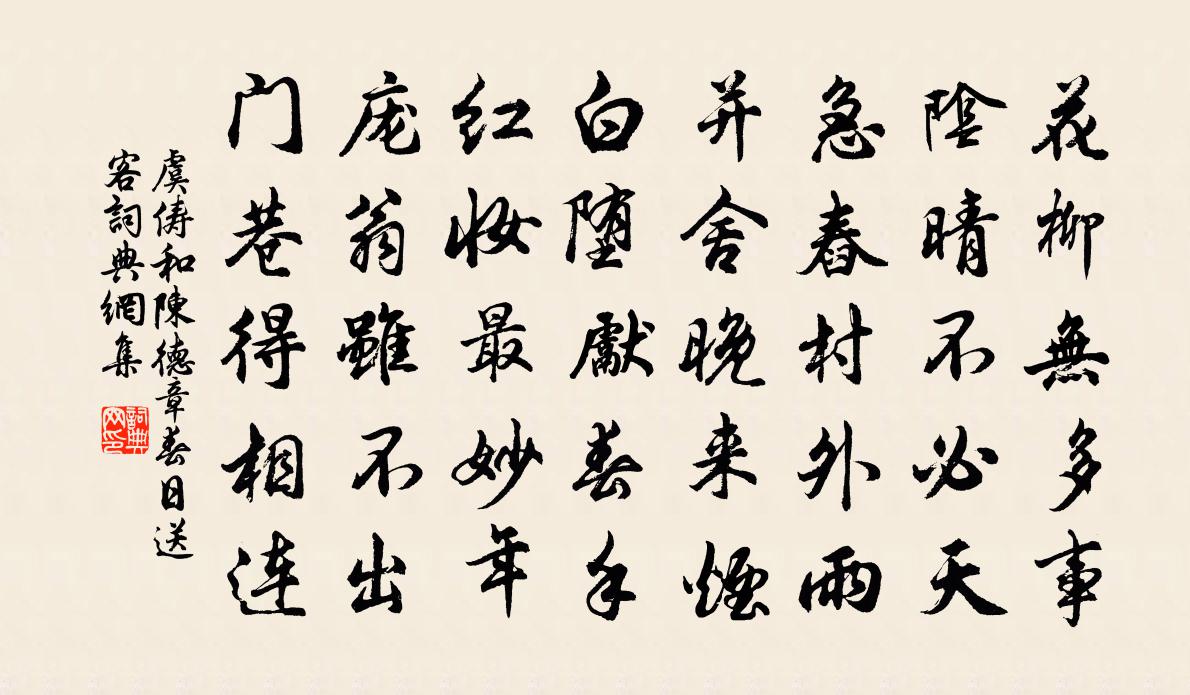 花柳無多事
陰晴不必天
急舂村外雨
并舍晚来煙
白堕獻春手
红妆最妙年
庞翁雖不出
门巷得相连
虞儔和陳德章春日送
客詞典網集
詞典
网印